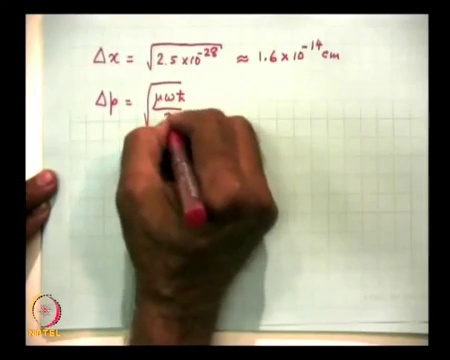 Δx = √2.5×10⁻²⁸ ≈ 1.6×10⁻¹⁴ cm
Δp = √μωħ
NPTEL